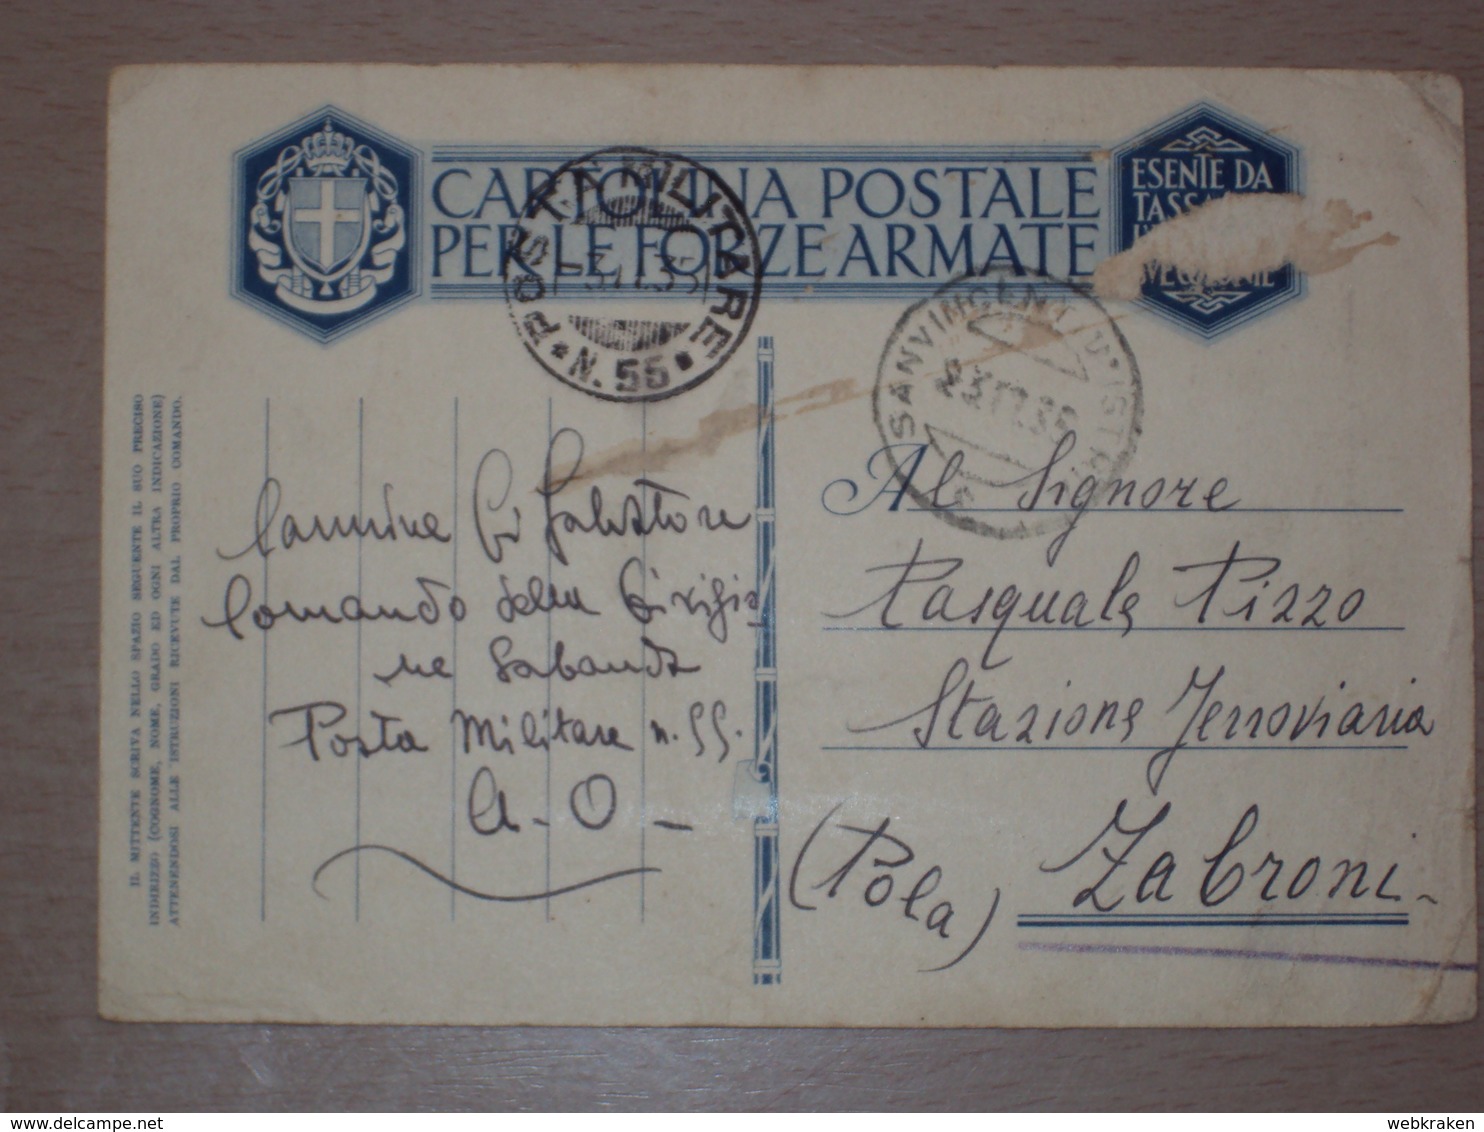 CARTOLINA POSTALE
PER LE FORZE ARMATE
ESENTE DA
POSTA MILITARE
N. 55
SANVINCENTI D'ISTRIA
IL MITTENTE SCRIVA NELLO SPAZIO SEGUENTE IL SUO PRECISO
INDIRIZZO (COGNOME, NOME, GRADO ED OGNI ALTRA INDICAZIONE)
ATTENENDOSI ALLE ISTRUZIONI RICEVUTE DAL PROPRIO COMANDO.
Carmine Salvatore
Comando della Divisio
ne Sabauda
Posta militare n. 55.
A. O.
Al Signore
Pasquale Pizzo
Stazione Ferroviaria
Zabroni
(Pola)
webkraken